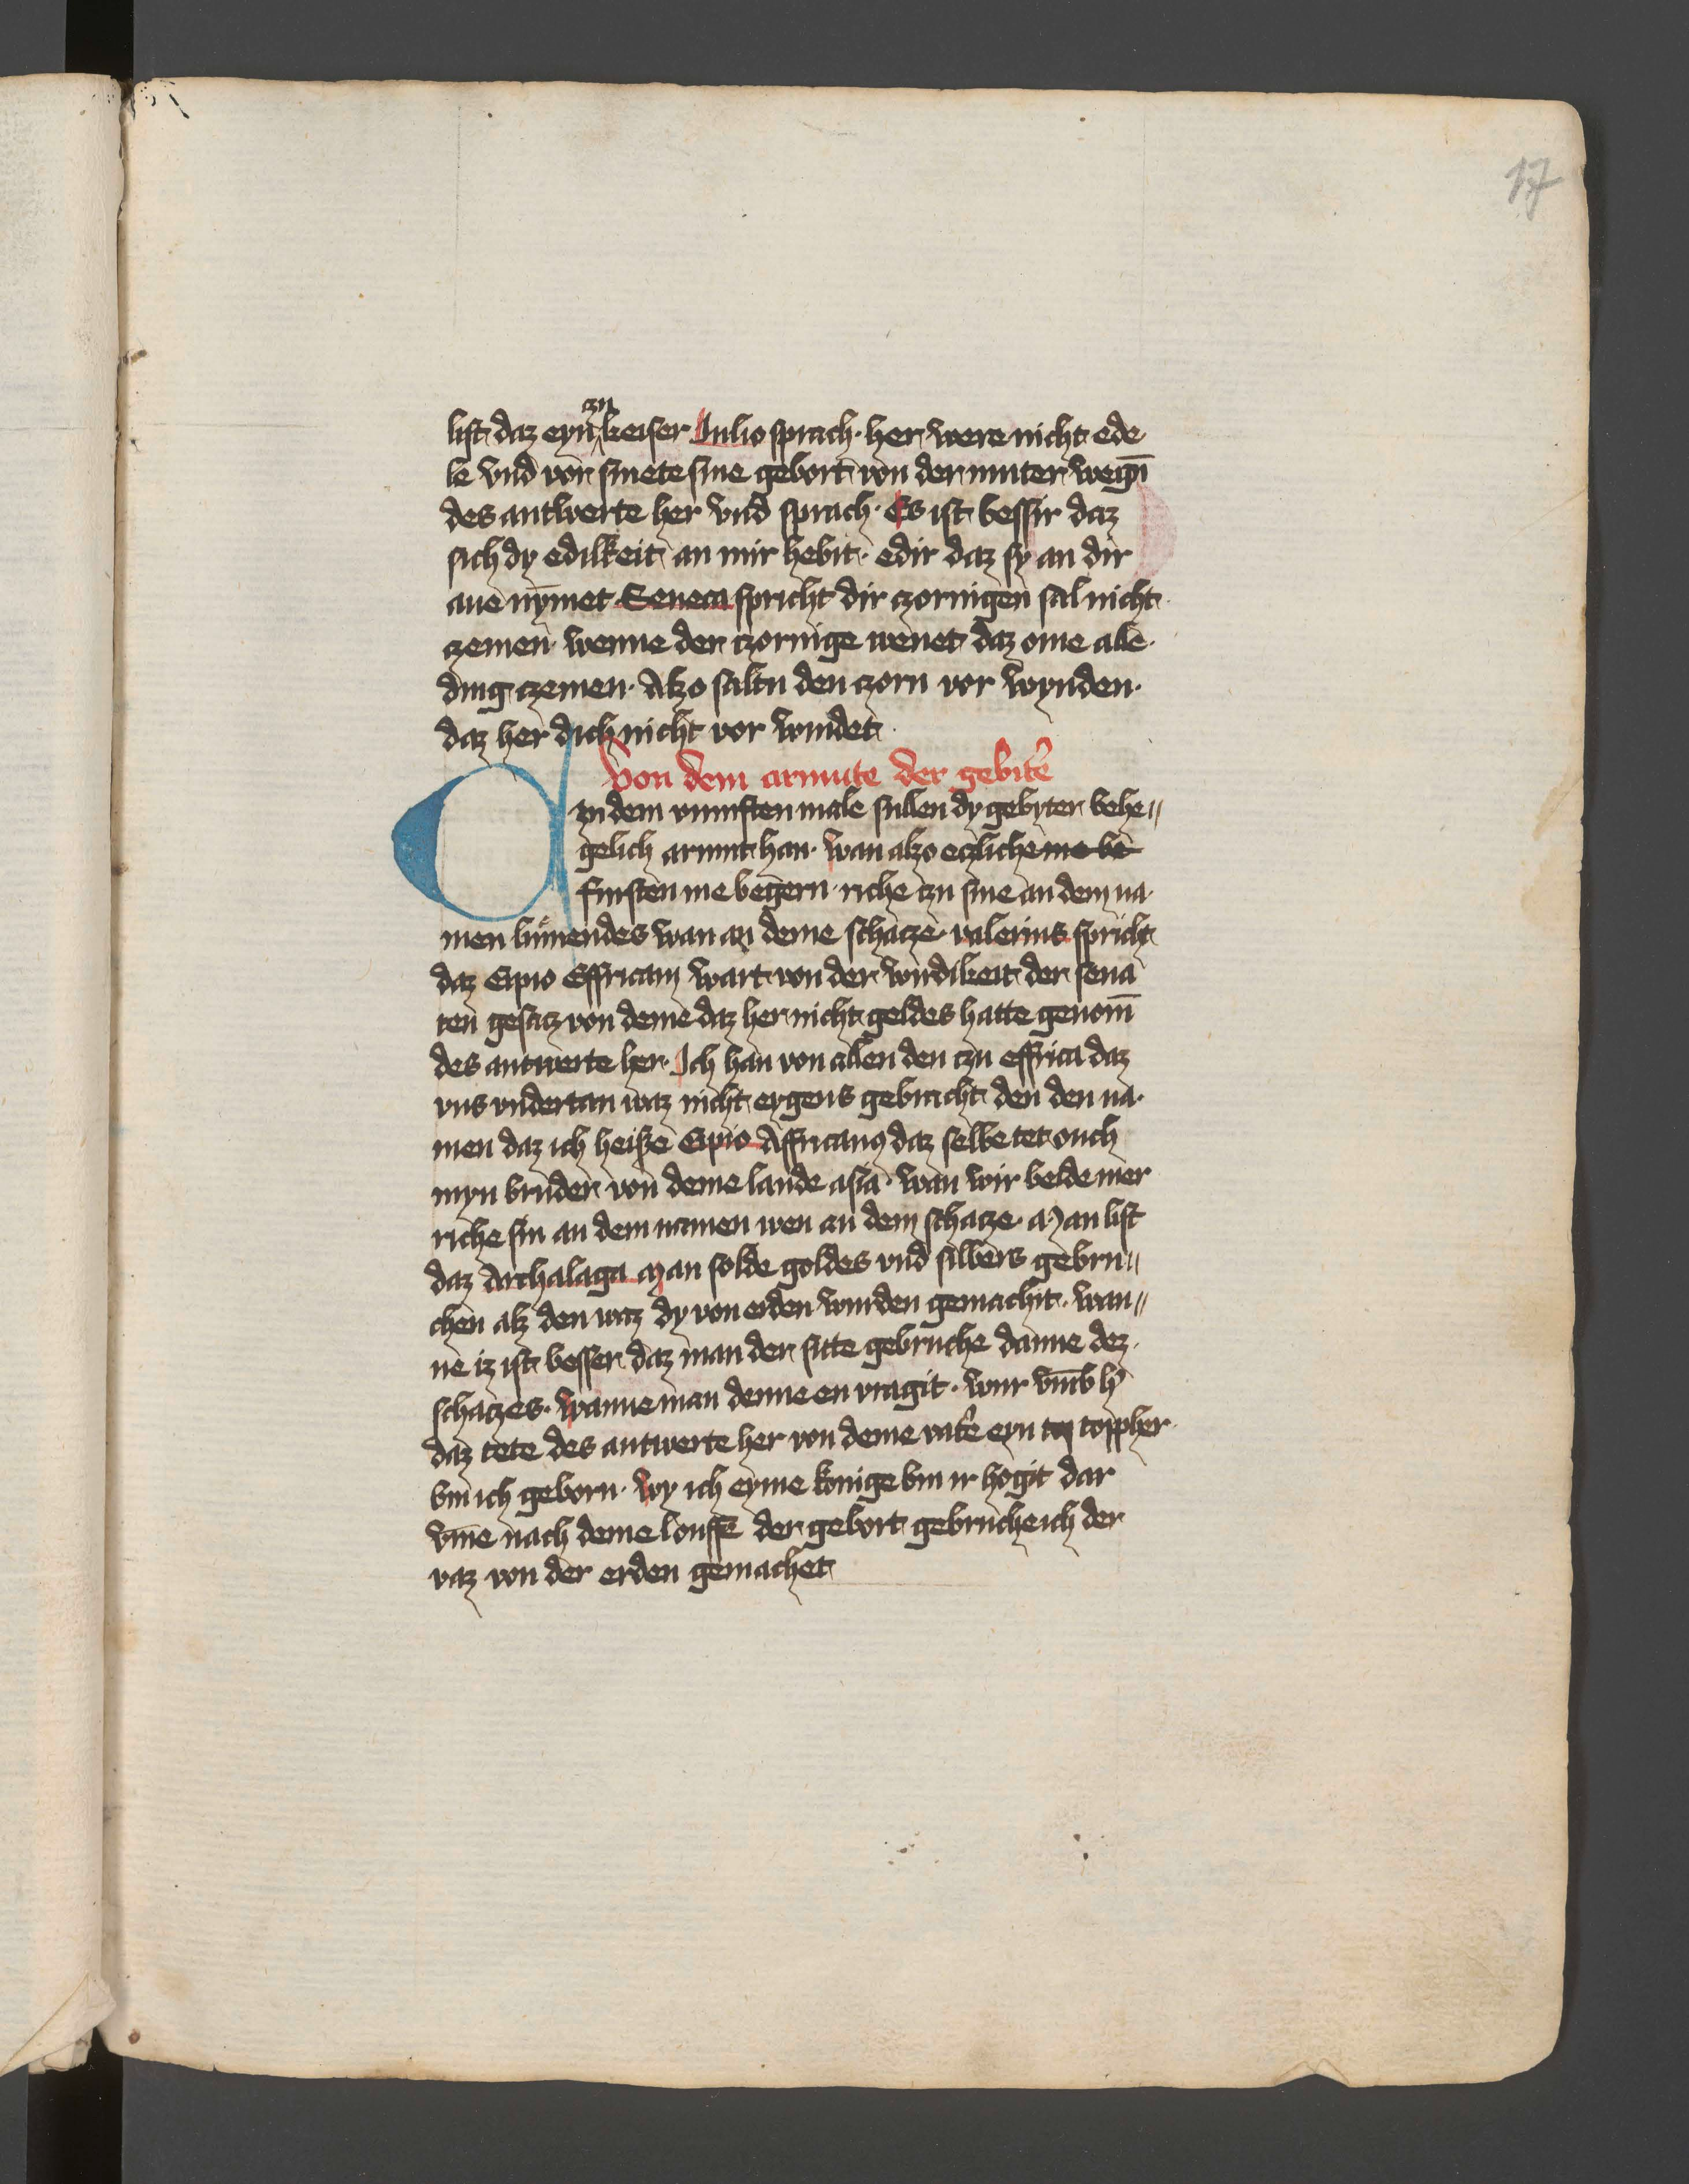 17
list daz eyn zu keiser Julio sprach· her were nicht ede
le vnd vor smete sine gebort von der muter wegn̄
des antwerte her vnd sprach· Es ist bessir daz
sich dy edilkeit an mir hebit· edir daz sy an dir
aue nȳmet Seneca spricht dir czornigen sal nicht
czemen· wenne der czornige wenet daz ome alle·
ding czemen· Alzo saltu den czorn vor wynden·
daz her dich nicht vor windet
Von dem armute der gebite᷑
An dem vumften male sullen dy gebyter behe〃
gelich armut han· wan alzo eczliche me be
fursten me begern· riche czu sine an dem na·
men lumendes wan an deme schacze· valerius spricht
daz Cipio Effricam wart von der wirdikeit der sena
ten gesacz von deme daz her nicht geldes hatte genom̄
des antwerte her· Ich han von allen den czu effrica daz
vns vndertan waz nicht eygens gebracht den den na·
men daz ich heiße Cipio Affricanꝯ daz selbe tet ouch
myn bruder von deme lande asia· wan wir beide mer
riche sin an dem namen wen an dem schacze· Man list
daz Archalaga Man solde goldes vnd silbers gebru〃
chen alz den vaz dy von erden wurden gemachit· wan〃
ne iz ist besser daz man der sitte gebruche danne dez·
schaczes· wanne man denne en vragit· wur vm̄b h᷑
daz tete des antwerte her von deme vate᷑ eyn top toppher
bin ich geborn· wy ich eyme konige bin ir hogit dar
vm̄e nach deme louffe der gebort gebruche ich der
vaz von der erden gemachet